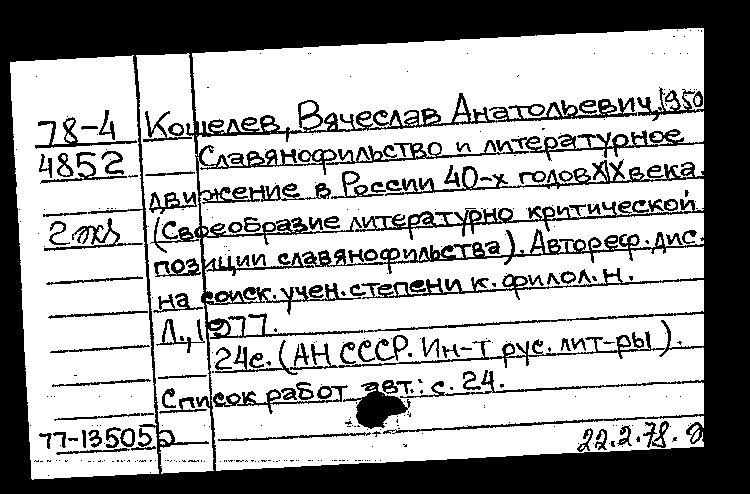 78-4 Кошелев, Вячеслав Анатольевич, 1950
4852 Славянофильство и литературное
движение в России 40-х годов XIX века.
2 экз (Своеобразие литературно критической
позиции славянофильства). Автореф. дис.
на соиск. учен. степени к. филол. н.
Л., 1977.
24с. (АН СССР. Ин-т рус. лит-ры).
Список работ авт.: с. 24.
77-13505
22.2.78.